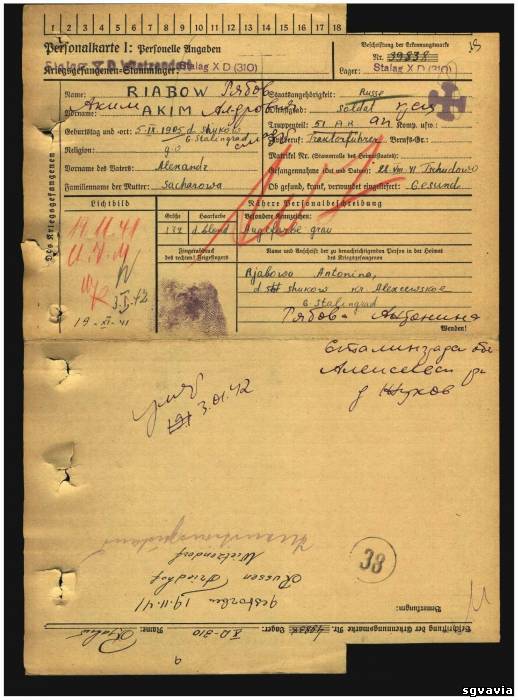 1 2 3 4 5 6 7 8 9 10 11 12 13 14 15 16 17 18
Personalkarte I: Personelle Angaben
Beschriftung der Erkennungsmarke
Nr. 39838
Kriegsgefangenen-Stammlager: Stalag X D (310)
Lager: Stalag X D (310)
Des Kriegsgefangenen
Name: RIABOW Рябов
Staatsangehörigkeit: Russe
Vorname: AKIM Аким
Dienstgrad: Soldat
Truppenteil: 51 A.R. Komp. usw.:
Geburtstag und -ort: 5.IX.1905 d. Shukow
G. Stalingrad
Zivilberuf: Traktorführer Berufs-Gr.:
Religion: g.o
Matrikel Nr. (Stammrolle des Heimatstaates):
Vorname des Vaters: Alexandr
Gefangennahme (Ort und Datum): Tschudowo
Familienname der Mutter: Sacharowa
Ob gesund, krank, verwundet eingeliefert: Gesund
Lichtbild
Nähere Personalbeschreibung
Größe Haarfarbe Besondere Kennzeichen:
d.blond Augenfarbe grau
19.11.41
3.I.42
19-XI-41
Fingerabdruck
des rechten! Zeigefingers
Name und Anschrift der zu benachrichtigenden Person in der Heimat
des Kriegsgefangenen
Rjabowa Antonina,
d. Shukow Alexeewskoe
G. Stalingrad
Рябова Антонина
Wenden!
Жуков
3.01.42
38
Bemerkungen:
gestorben 19.11.41
Russen Friedhof
Wietzendorf
Beschriftung der Erkennungsmarke Nr. 39838 Lager: XD-310 Name: Rjabow
sgvavia